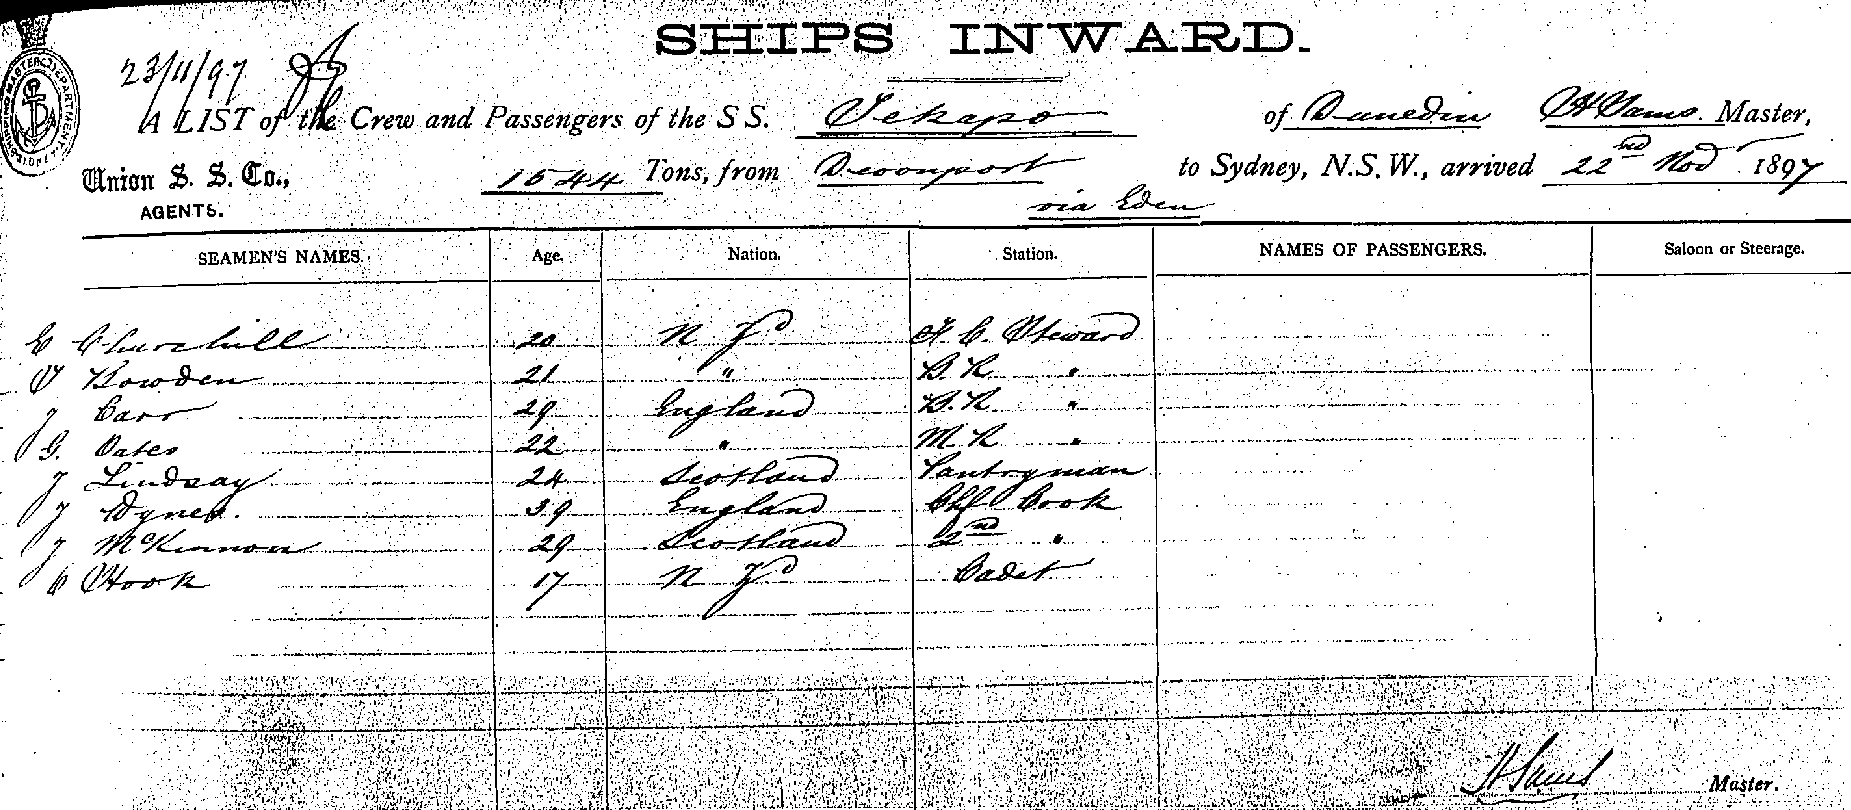 SHIPS INWARD.
23/11/97
A LIST of the Crew and Passengers of the S S. Tekapo of Dunedin H Sams. Master,
Union S. S. Co., 1544 Tons, from Devonport to Sydney, N.S.W., arrived 22nd Nov 1897
AGENTS. via Eden
SEAMEN'S NAMES. Age. Nation. Station. NAMES OF PASSENGERS. Saloon or Steerage.
E Churchill 20 N Zd F. C. Steward
Bowden 21 " B. R. "
J Carr 29 England B. R. "
G. Oates 22 " M R "
J Lindsay 24 Scotland Pantryman
J Dynes. 39 England Chf Cook
J McKinnon 29 Scotland 2nd "
C Hook 17 N Zd Cadet
H Sams Master.